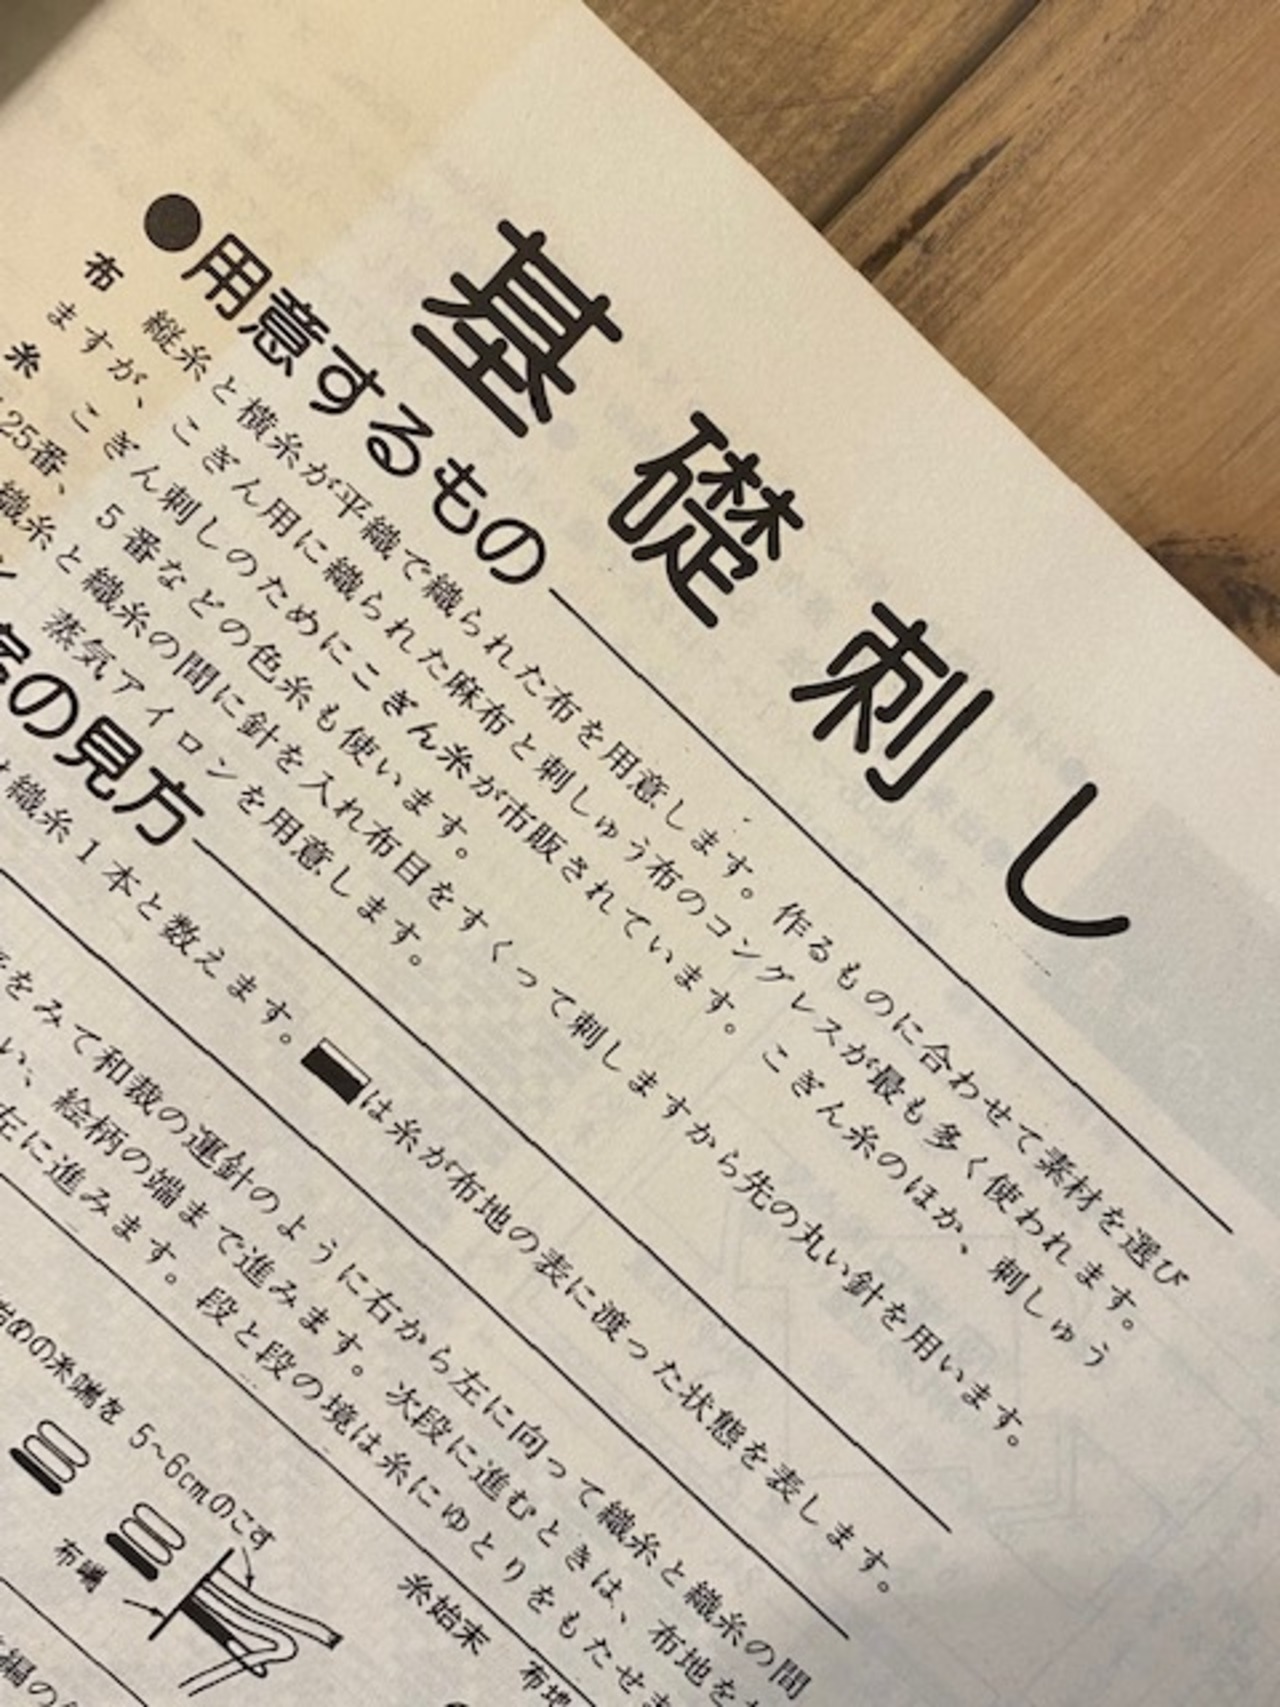 基礎刺し
●用意するもの
布　縦糸と横糸が平織で織られた布を用意します。作るものに合わせて素材を選び
ますが、こぎん用に織られた麻布と刺しゅう布のコングレスが最も多く使われます。
糸　こぎん刺しのためにこぎん糸が市販されています。こぎん糸のほか、刺しゅう
25番、5番などの色糸も使います。
織糸と織糸の間に針を入れ布目をすくって刺しますから先の丸い針を用います。
蒸気アイロンを用意します。
の見方
織糸1本と数えます。は糸が布地の表に渡った状態を表します。
をみて和裁の運針のように右から左に向って織糸と織糸の間
い、絵柄の端まで進みます。次段に進むときは、布地を
左に進みます。段と段の境は糸にゆとりをもたせま
始めの糸端を5~6cmのこす
布端
糸始末
布地